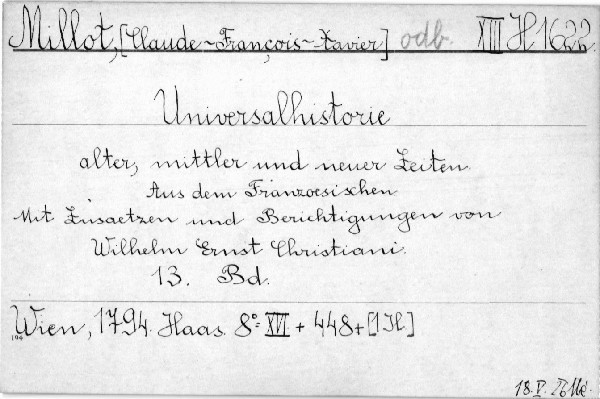 Millot, [Claude-François-Xavier] odb. XIII H 1622.
Universalhistorie
alter, mittler und neuer Zeiten.
Aus dem Franzoesischen
Mit Zusaetzen und Berichtigungen von
Wilhelm Ernst Christiani.
13. Bd.
Wien, 1794. Haas. 8°= XVI + 448 + [1 H.]
194
18. V.